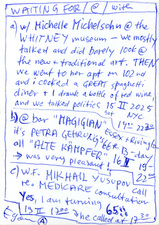 WAITING FOR / @ / with
a) w/ Michelle Michelsohn @ the
WHITNEY museum - we mostly
talked and did barely look @
the new + traditional art. THEN
We went to her apt on 102nd
and i cooked a GREAT spaghetti
dinner + I drank a bottle of red wine
and we talked politics 15 II 2025
NYC
b) @ bar "MAGICIAN" Essex + Rivington
it's PETRA GEHRUNG's 66. B-day
all "ALTE KÄMPFER"
→ was very pleasant 16 II
c) W.F. MIKHAIL Yusupov call
re. MEDICARE consultation
Yes, I am turning
65!!
13 II 17 he called at 17